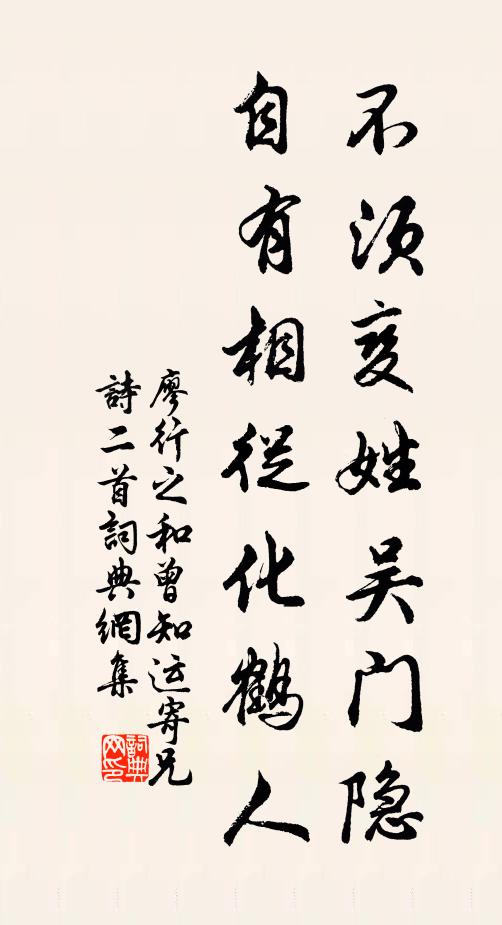 不须变姓吴门隐
自有相從化鹤人
廖行之和曾知运寄兄
詩二首詞典網集
詞典
网印